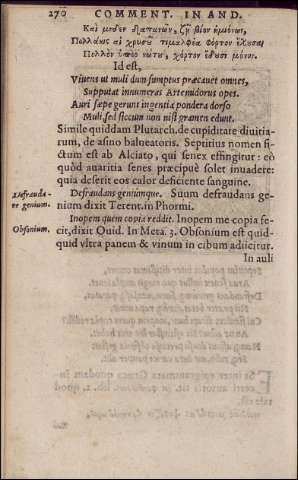 270 COMMENT. IN AND.
Καὶ μηδὲν δαπανῶν, ζῆ βίον ἡμιόνου,
Πολλάκις αἱ χρυσῦ τιμαλφέα φόρτον ἔχουσαι
Πολλὸν ὑπὲρ νώτυ, χόρτον ἔδουσι μόνον.
Id est,
Vivens ut muli dum sumptus præcavet omnes,
Supputat innumeras Artemidorus opes.
Auri sæpe gerunt ingentia pondera dorso
Muli, sed siccum non nisi gramen edunt.
Simile quiddam Plutarch. de cupiditate divitia-
rum, de asino balneatoris. Septitius nomen fi-
ctum est ab Alciato, qui senex effingitur: eò
quòd avaritia senes præcipuè solet invadere:
quia deserit eos calor deficiente sanguine.
Defrauda-
re genium.
Defraudans geniumque. Suum defraudans ge-
nium dixit Terent. in Phormi.
Inopem quem copia reddit. Inopem me copia fe-
Obsonium.
cit, dixit Ouid. In Meta. 3. Obsonium est quid-
quid vltra panem & vinum in cibum adiicitur.
In auli